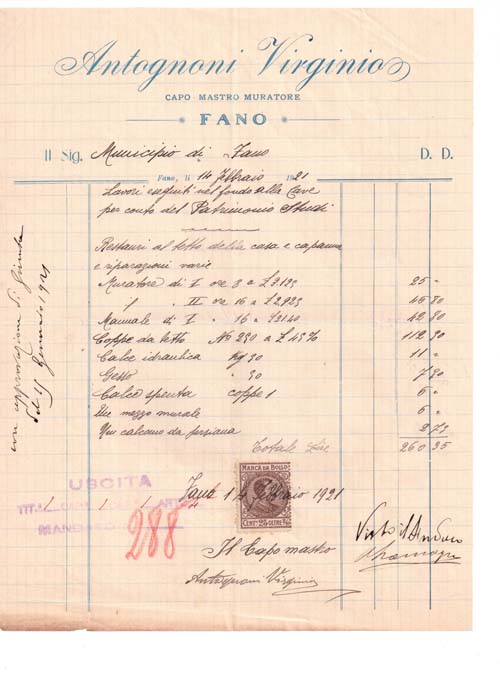 Antognoni Virginio
CAPO MASTRO MURATORE
FANO
Il Sig. Municipio di Fano D. D.
Fano, li 14 Febbraio 1921
Lavori eseguiti nel fondo alla Cave
per conto del Patrimonio Studi
Restauri al tetto della casa e capanna
e riparazioni varie
Muratore di I ore 8 a £ 3.125 25 "
" II ore 16 a £ 2,925 46 80
Manuale di I " 16 a £ 2.140 42 80
Coppe da tetto No 250 a £ 45% 112 50
Calce idraulica Kg 50 11 "
Gesso " 30 7 50
Calce spenta coppe 1 6 "
Un mezzo murale 6 "
Un calcano da persiana 2 75
Totale Lire 260 35
con approvazione di Giunta
del 15 Gennaio 1921
USCITA
TIT. ART.
MANDATO
288
MARCA DA BOLLO
CENT. 25 OLTRE
Fano 14 Febbraio 1921
Il Capo mastro
Antognoni Virginio
Visto